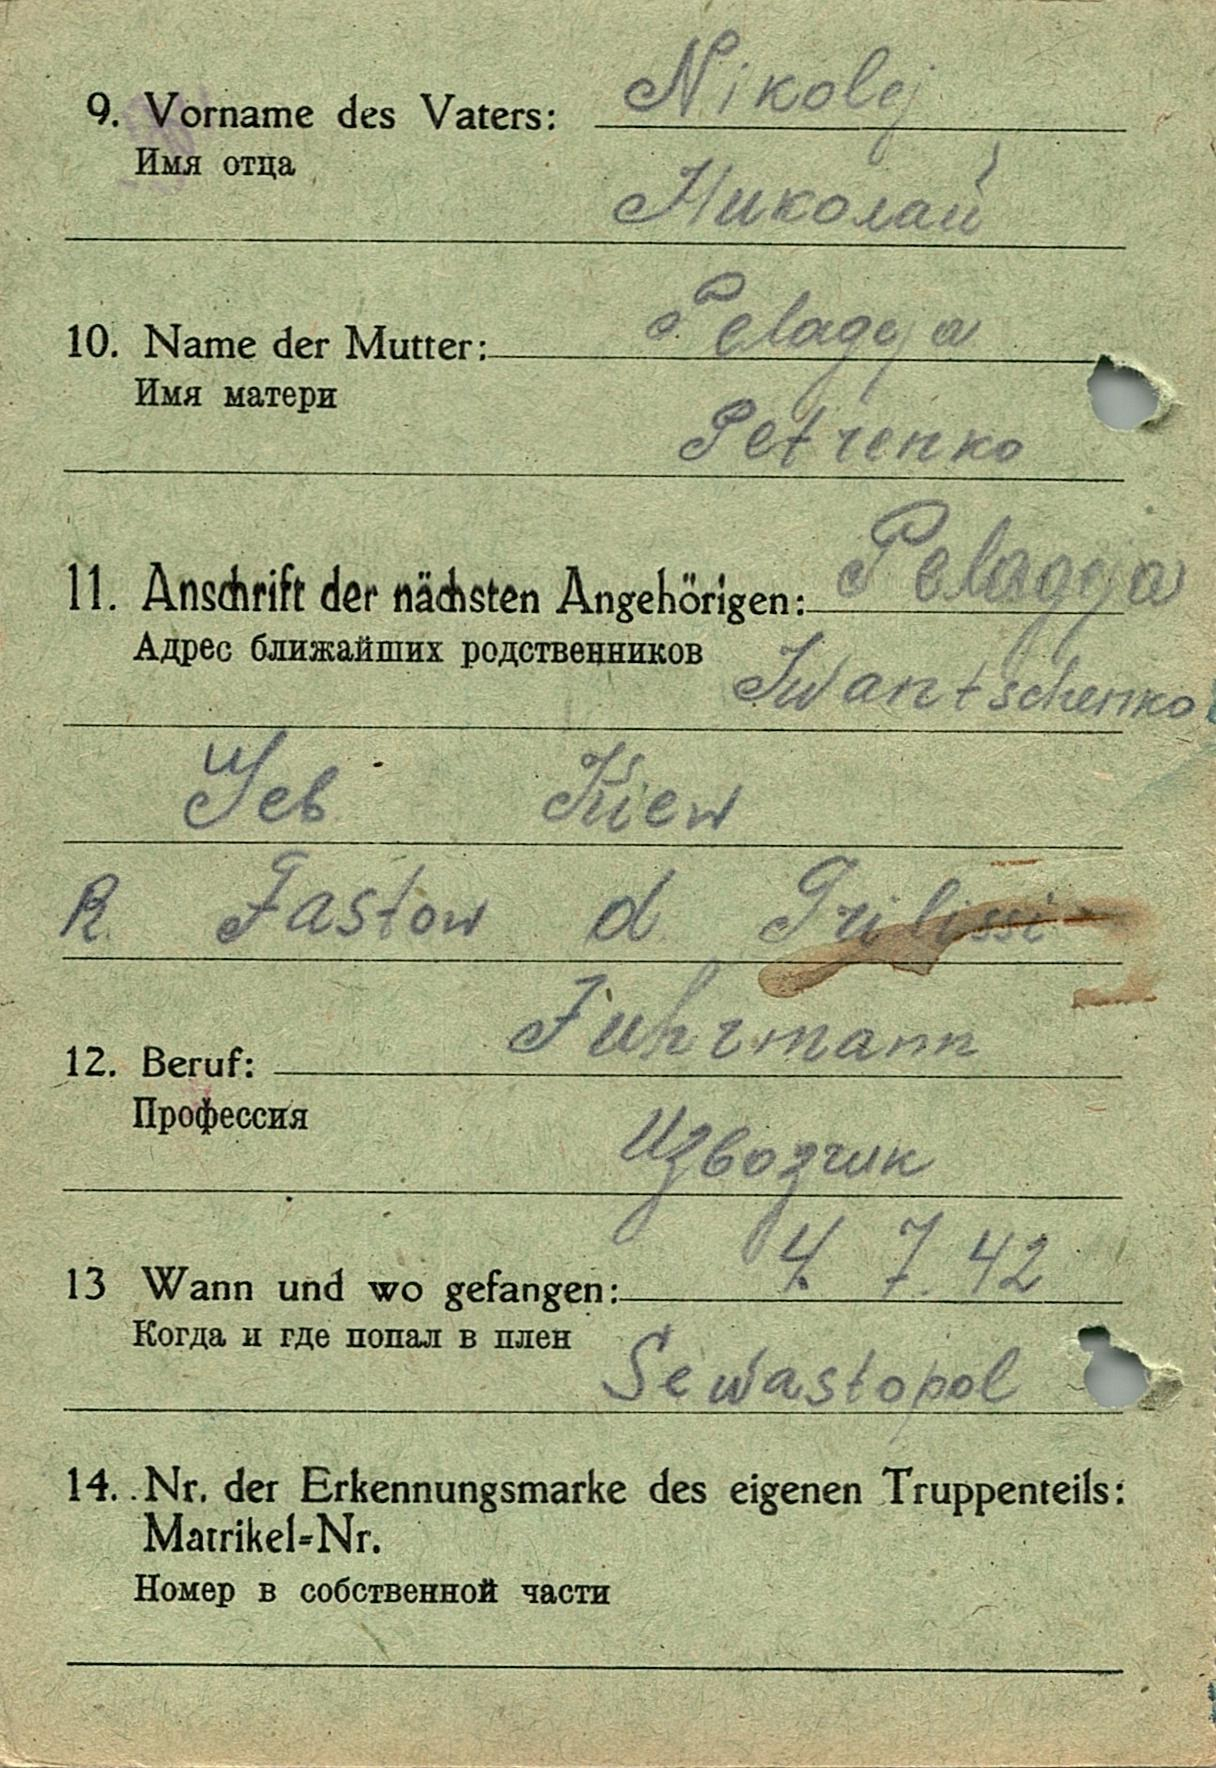 9. Vorname des Vaters: Nikolej
Имя отца
Николай
10. Name der Mutter: Pelageja
Имя матери
Petrenko
11. Anschrift der nächsten Angehörigen: Pelageja
Адрес ближайших родственников
Iwantschenko
Geb Kiew
R. Fastow d. Trilissi
12. Beruf: Fuhrmann
Профессия
Извозчик
13 Wann und wo gefangen: 4. 7. 42
Когда и где попал в плен
Sewastopol
14. Nr. der Erkennungsmarke des eigenen Truppenteils:
Matrikel=Nr.
Номер в собственной части